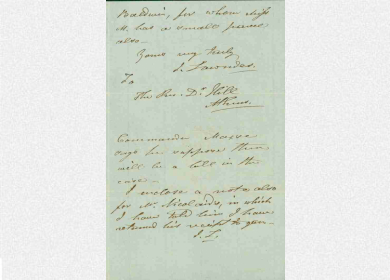 Baldwin, for whom Miss
M. has a small parcel
also—
Yours very truly
J. Lowndes.
To
The Rev. Dr. Hill
Athens.
Commander
says he supposes there
will be a bill in the
case—
I enclose a note also
for Mr. Nicolaides, in which
I have told him I have
returned his receipt to you—
J. L.